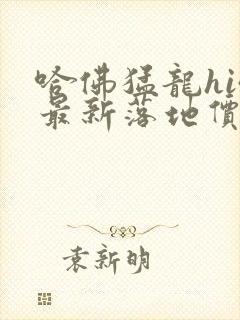 哈佛猛龍hi
最新落地價
袁新明